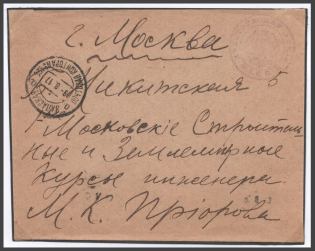 г. Москва
Никитская 5
Московскіе Строитель-
ные и Землемѣрные
Курсы инженера
М. К. Пріорова